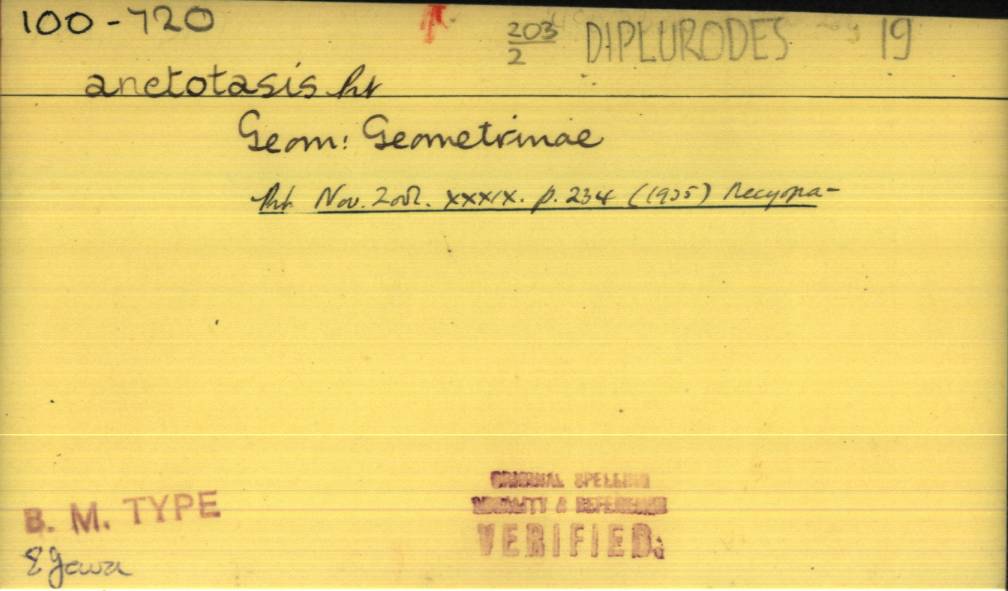 100-720
203/2 DIPLURODES 19
anctotasis Prt
Geom: Geometrinae
Prt. Nov. Zool. XXXIX. p. 234 (1935) Necyopa-
B. M. TYPE
E Java
ORIGINAL SPELLING
LOCALITY & REFERENCE
VERIFIED.